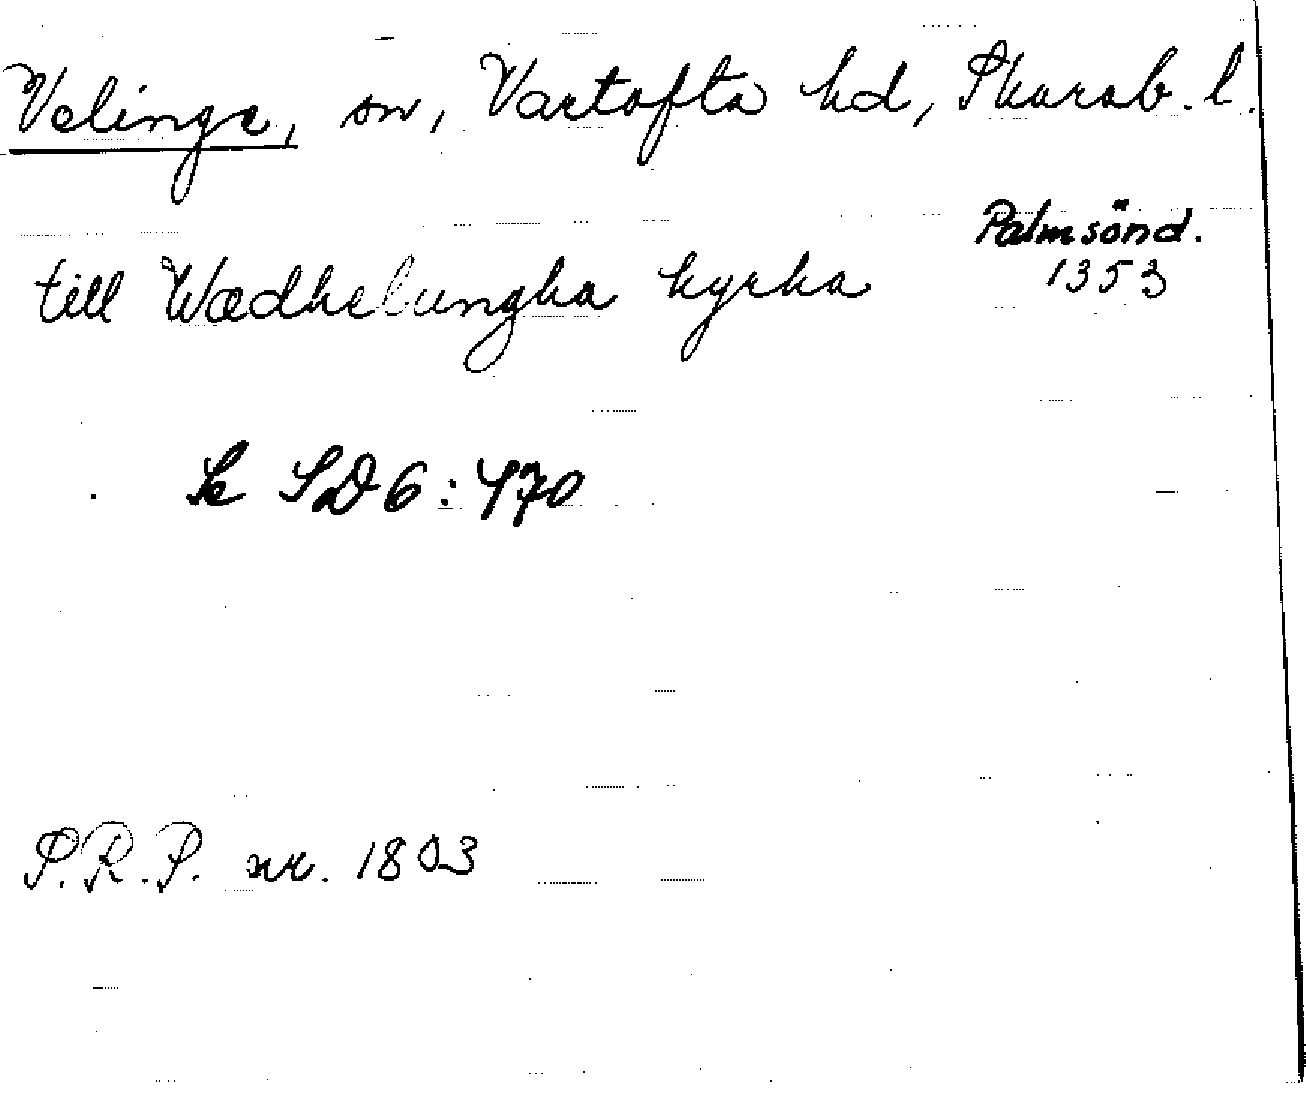 Velinge, sn, Vartofta hd, Skarab. l.
Palmsönd.
1353
till Wædhelungha kyrka
Se SD 6: 470
S.R.P. nr. 1803